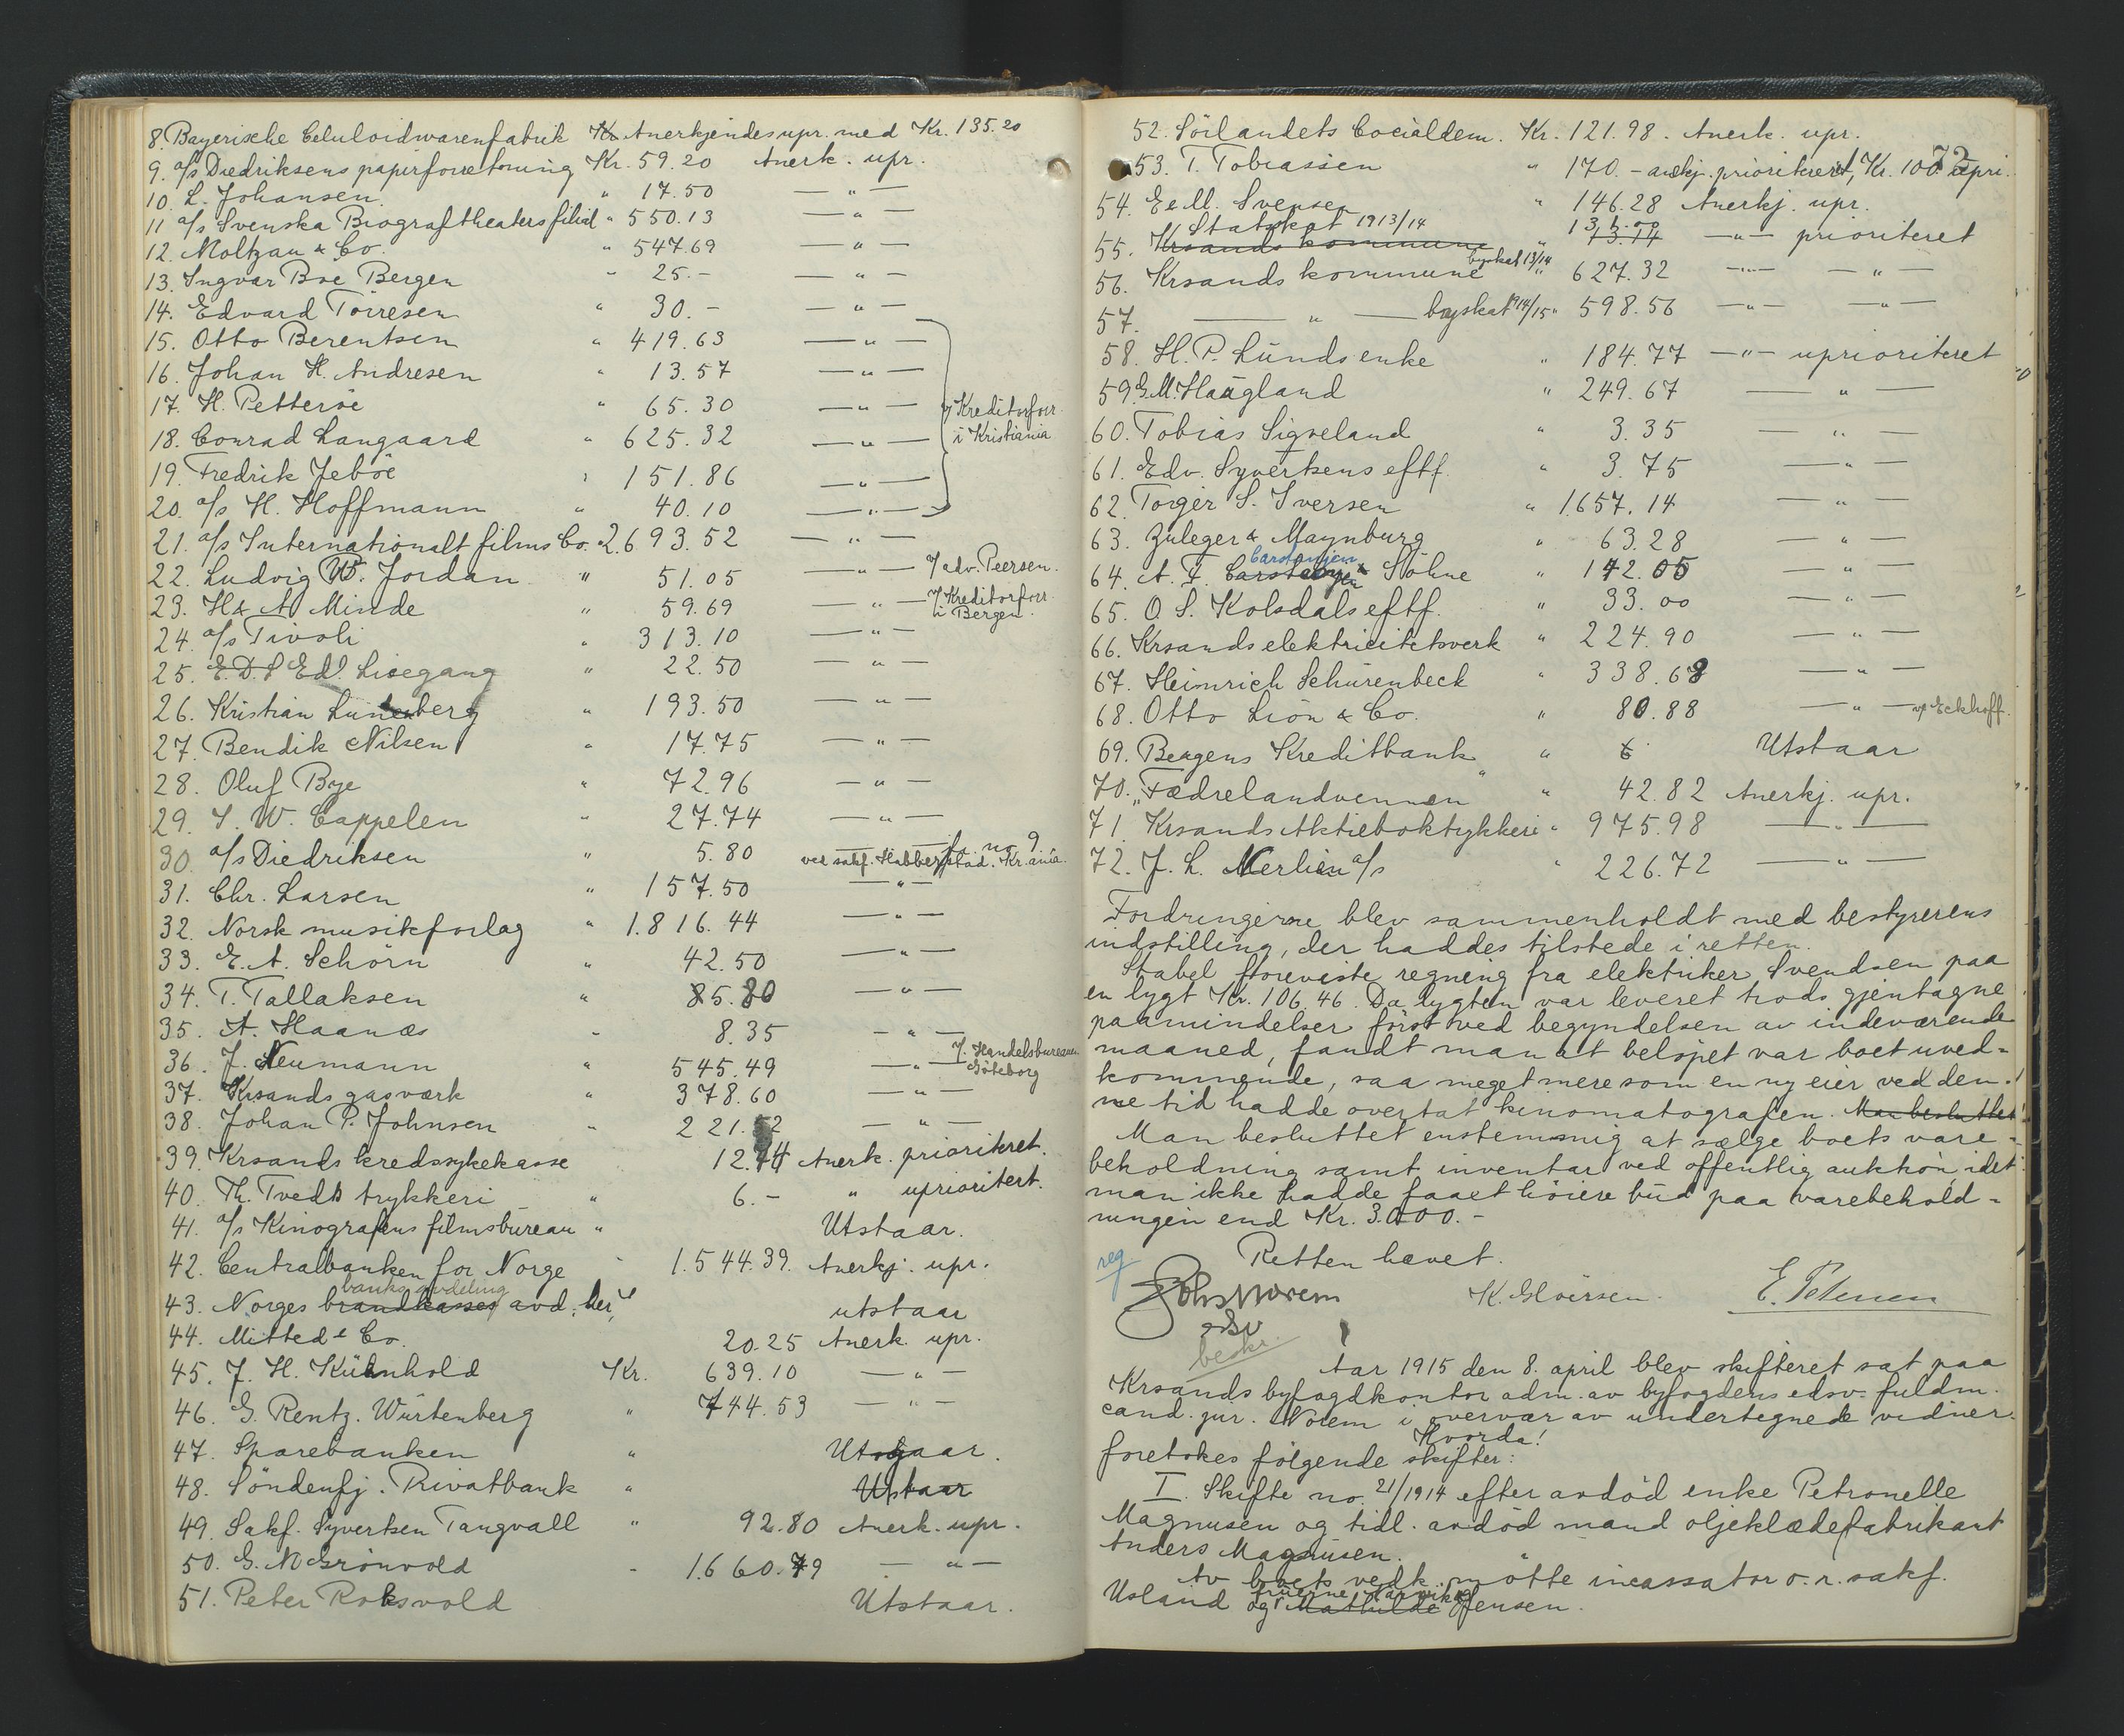 8. Bayerische Celuloidwarenfabrik Kr. Anerkjendes upr. med Kr. 135.20
9. a/s Diedriksens papirforretning Kr. 59.20 Anerk. upr.
10. L. Johansen. " 17.50 — " —
11 a/s Svenska Biograftheaters filial " 550.13 — " —
12. Moltzau & Co. " 547.69 — " —
13. Ingvar Boe Bergen " 25.- — " —
14. Edvard Törresen " 30.- — " —
15. Otto Berentsen " 419.63 — " —
16. Johan H. Andresen " 13.57 — " —
17. H. Petteröe " 65.30 — " — v/ Kreditorfor.
18. Conrad Langaard " 625.32 — " — i Kristiania
19. Fredrik Jeböe " 151.86 — " —
20. a/s H. Hoffmann " 40.10 — " —
21. a/s Internationalt films Co. " 2.693.52 — " —
22. Ludvig W. Jordan " 51.05 — " — v/ adv. Peersen.
23. H & A Minde " 59.69 — " — v/ Kreditorfor. i Bergen.
24. a/s Tivoli " 313.10 — " —
25. E.D.S Ed. Liesegang " 22.50 — " —
26. Kristian Lunenberg " 193.50 — " —
27. Bendik Nilsen " 17.75 — " —
28. Oluf Bye " 72.96 — " —
29. J. W. Cappelen " 27.74 — " —
30. a/s Diedriksen " 5.80 — " — fr. no 9. ved sakf. Habberstad. Kr.ania.
31. Chr. Larsen " 157.50 — " —
32. Norsk musikforlag " 1.816.44 — " —
33. E. A. Schörn " 42.50 — " —
34. T. Tallaksen " 85.80 — " —
35. A. Haanæs " 8.35 — " —
36. J. Neumann " 545.49 — " — v/. Handelsbureauen Göteborg
37. Krsands gasværk " 378.60 — " —
38. Johan P. Johnsen " 221.52 — " —
39. Krsands kredssykekasse 12.44 Anerk. prioriteret.
40. Th. Tvedts trykkeri " 6.- " uprioritert.
41. a/s Kinografens filmsbureau " Utstaar.
42. Centralbanken for Norge " 1.544.39. Anerkj. upr.
43. Norges brandkasses banks avdeling avd. her utstaar
44. Mitted & Co. 20.25 Anerk. upr.
45. J. H. Kühnhold Kr. 639.10 — " —
46. G. Rentz. Würtenberg " 744.53 — " —
47. Sparebanken " Utgaar.
48. Söndenfj. Privatbank " Utstaar
49. Sakf. Syvertsen Tangvall " 92.80 Anerk. upr.
50. G. N Grönvold " 1.660.79 — " —
51. Peter Roksvold Utstaar.
72
52. Sörlandets Socialdem. Kr. 121.98. Anerk. upr.
53. T. Tobiassen " 170.- ankj. prioriteret, Kr. 100 upri.
54. E & M. Svensen " 146.28 Anerkj. upr.
Statskat 1913/14
55. Krsands kommune " 13.14 — " — prioriteret
56. Krsands kommune byskat 13/14 " 627.32 — " — — " —
57. — " — byskat 1914/15 " 598.56 — " — — " —
58. H. P. Lunds enke " 184.77 — " — uprioriteret
59 G.M. Haagland " 249.67 — " —
60. Tobias Sigveland " 3.35 — " —
61. Edv. Syvertsens eftf. " 3.75 — " —
62. Torger S. Iversen " 1.657.14 — " —
63. Zuleger & Maynburg " 63.28 — " —
64. A. F. Carstanjen & Söhne " 142.05 — " —
65. O. S. Kolsdals eftf. " 33.00 — " —
66. Krsands elektricitetsverk " 224.90 — " —
67. Heinrich Schürenbeck " 338.68 — " —
68. Otto Liön & Co. " 80.88 — " — v/ Eckhoff.
69. Bergens Kreditbank " 6 Utstaar
70. "Fædrelandvennen" " 42.82 Anerkj. upr.
71. Krsands Aktieboktrykkeri " 975.98 — " —
72. J. L. Nerlien a/s " 226.72 — " —
Fordringerne blev sammenholdt med bestyrerens
indstilling, der haddes tilstede i retten.
Stabel foreviste regning fra elektriker Svendsen paa
en lygt Kr. 106.46. Da lygten var leveret trods gjentagne
paamindelser först ved begyndelsen av indeværende
maaned, fandt man at belöpet var boet uved-
kommende, saa meget mere som en ny eier ved den-
ne tid hadde overtat kinomatografen. Man besluttet
Man besluttet enstemmig at sælge boets vare-
beholdning samt inventar ved offentlig auktion, idet
man ikke hadde faaet höiere bud paa varebehold-
ningen end Kr. 3.000.-
reg Retten hævet.
Johs Norem K. Glöersen. E. Petersen
edsv
beskr
Aar 1915 den 8. april blev skifteret sat paa
Krsands byfogdkontor adm. av byfogdens edsv. fuldm.
cand. jur. Norem i overvær av undertegnede vidner.
Hvorda!
foretokes fölgende skifter:
I. Skifte no. 21/1914 efter avdöd enke Petronelle
Magnusen og tidl. avdöd mand oljeklædefabrikant
Anders Magnusen.
Av boets vedk. mötte incassator o.r. sakf.
Usland og fruerne Mathilde Jensen.